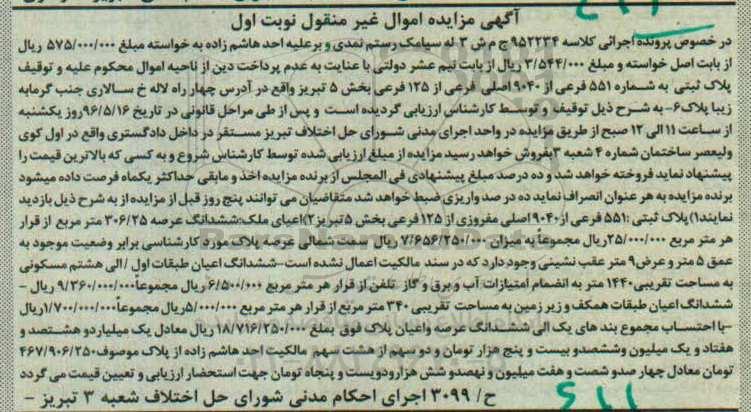 آگهی مزایده اموال غیر منقول نوبت اول
در خصوص پرونده اجرائی کلاسه ۹۵۲۲۳۴ ج م ش ۳ له سیامک رستم نمدی و برعلیه احد هاشم زاده به خواسته مبلغ ۵۷۵/۰۰۰/۰۰۰ ریال
از بابت اصل خواسته و مبلغ ۳/۵۴۴/۰۰۰ ریال از بابت نیم عشر دولتی با عنایت به عدم پرداخت دین از ناحیه اموال محکوم علیه و توقیف
پلاک ثبتی به شماره ۵۵۱ فرعی از ۹۰۴۰ اصلی فرعی از ۱۲۵ فرعی بخش ۵ تبریز واقع در آدرس چهار راه لاله خ سالاری جنب گرمابه
زیبا پلاک ۶- به شرح ذیل توقیف و توسط کارشناس ارزیابی گردیده است و پس از طی مراحل قانونی در تاریخ ۹۶/۵/۱۶ روز یکشنبه
از ساعت ۱۱ الی ۱۲ صبح از طریق مزایده در واحد اجرای مدنی شورای حل اختلاف تبریز مستقر در داخل دادگستری واقع در اول کوی
ولیعصر ساختمان شماره ۴ شعبه ۳ بفروش خواهد رسید مزایده از مبلغ ارزیابی شده توسط کارشناس شروع و به کسی که بالاترین قیمت را
پیشنهاد نماید فروخته خواهد شد و ده درصد مبلغ پیشنهادی فی المجلس از برنده مزایده اخذ و مابقی حداکثر یکماه فرصت داده میشود
برنده مزایده به هر عنوان انصراف نماید ده در صد واریزی ضبط خواهد شد متقاضیان می توانند پنج روز قبل از مزایده از به شرح ذیل بازدید
نمایند۱) پلاک ثبتی :۵۵۱ فرعی از ۹۰۴۰ اصلی مفروزی از ۱۲۵ فرعی بخش ۵ تبریز ۲)اعیای ملک:ششدانگ عرصه ۳۰۶/۲۵ متر مربع از قرار
هر متر مربع ۲۵/۰۰۰/۰۰۰ریال مجموعاً به میزان ۷/۶۵۶/۲۵۰/۰۰۰ ریال سمت شمالی عرصه پلاک مورد کارشناسی برابر وضعیت موجود به
عمق ۵ متر و عرض ۹ متر عقب نشینی وجود دارد که در سند مالکیت اعمال نشده است-ششدانگ اعیان طبقات اول / الی هشتم مسکونی
به مساحت تقریبی ۱۴۴۰ متر به انضمام امتیازات آب و برق و گاز تلفن از قرار هر متر مربع ۶/۵۰۰/۰۰۰ ریال مجموعاً ۹/۳۶۰/۰۰۰/۰۰۰ ریال -
ششدانگ اعیان طبقات همکف و زیر زمین به مساحت تقریبی ۳۴۰ متر مربع از قرار هر متر مربع ۵/۰۰۰/۰۰۰ریال مجموعاً ۱/۷۰۰/۰۰۰/۰۰۰ریال
-با احتساب مجموع بند های یک الی ششدانگ عرصه واعیان پلاک فوق بمبلغ ۱۸/۷۱۶/۲۵۰/۰۰۰ ریال معادل یک میلیاردو هشتصد و
هفتاد و یک میلیون وششصدو بیست و پنج هزار تومان و دو سهم از هشت سهم مالکیت احد هاشم زاده از پلاک موصوف ۴۶۷/۹۰۶/۲۵۰
تومان معادل چهار صدو شصت و هفت میلیون و نهصدو شش هزارودویست و پنجاه تومان جهت استحضار ارزیابی و تعیین قیمت می گردد
ح/ ۳۰۹۹ اجرای احکام مدنی شورای حل اختلاف شعبه ۳ تبریز -